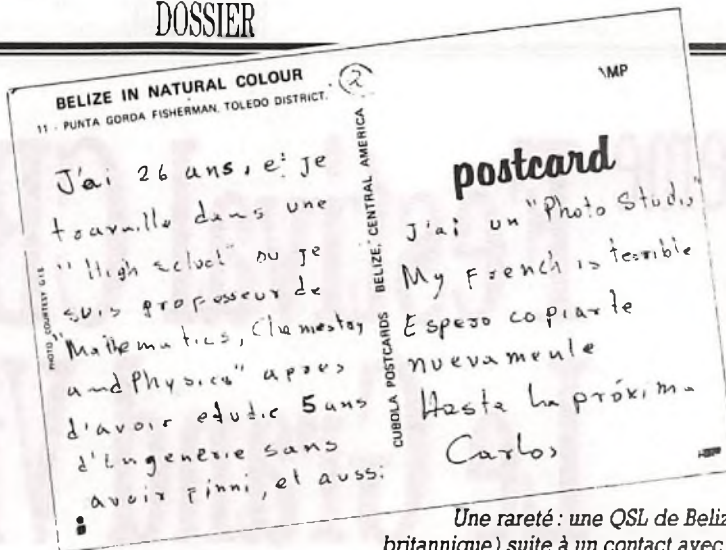 DOSSIER
BELIZE IN NATURAL COLOUR
11 - PUNTA GORDA FISHERMAN, TOLEDO DISTRICT.
2
J'ai 26 ans, et je
travaille dans une
"High School" ou je
suis professeur de
"Mathematics, Chemestry
and Physics" apres
d'avoir etudie 5 ans
d'Engenerie sans
avoir finni, et aussi
PHOTO COURTESY G.I.S
CUBOLA POSTCARDS BELIZE, CENTRAL AMERICA
MP
postcard
J'ai un "Photo Studio"
My French is terrible
Espero copiarte
nuevamente
Hasta la próxima
Carlos
Une rareté : une QSL de Beliz
britannique) suite à un contact avec